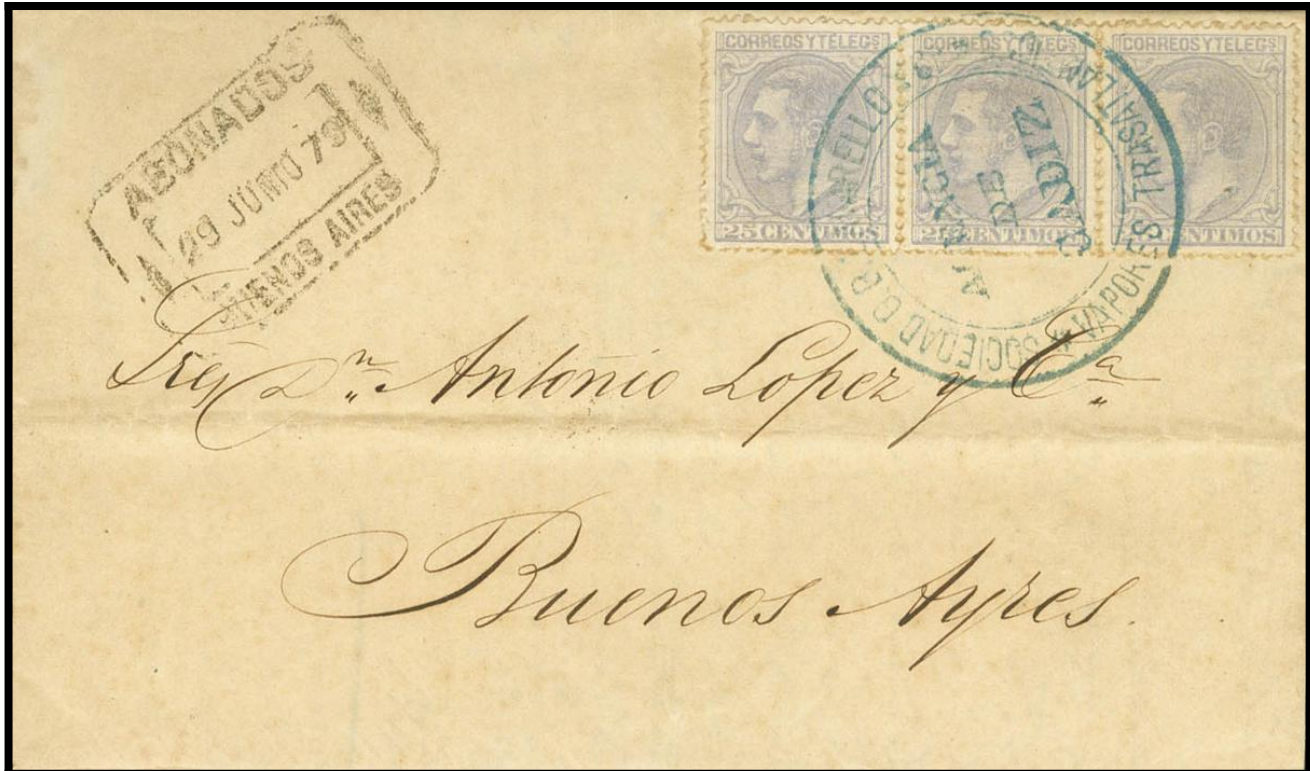 ABONADOS
29 JUNIO 79
BUENOS AIRES
CORREOS Y TÉLEGS
25 CENTIMOS
CORREOS Y TÉLEGS
25 CENTIMOS
CORREOS Y TÉLEGS
CENTIMOS
SOCIEDAD VAPORES TRASATL
AGENCIA
DE
CADIZ
Sres Dn. Antonio Lopez y Ca.
Buenos Ayres.